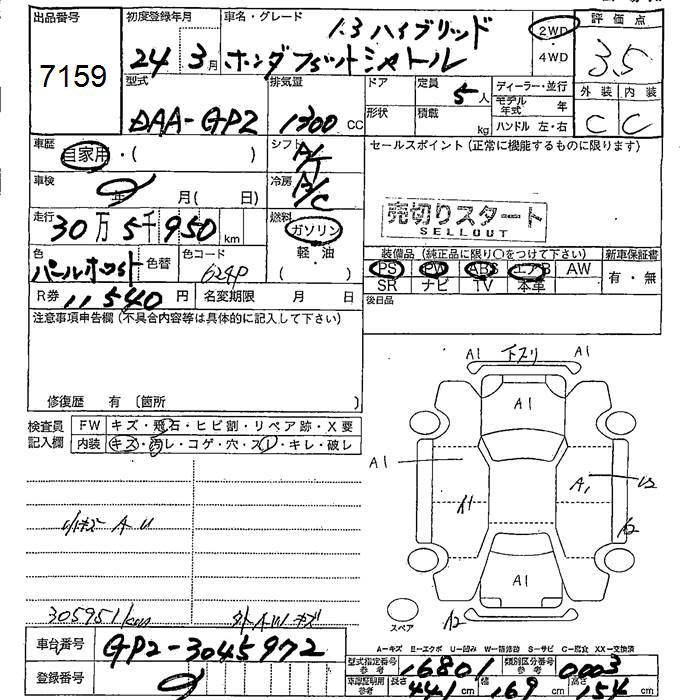 出品番号
7159
初度登録年月
24 3月
車名・グレード
1.3 ハイブリッド
ホンダフィットシャトル
2WD
・
4WD
評価点
3.5
外装 内装
C C
型式
DAA-GP2
排気量
1300 CC
ドア
形状
定員
5人
積載
kg
ディーラー・並行
モデル年式 年
ハンドル 左・右
車歴
自家用・( )
シフト
A/T
セールスポイント(正常に機能するものに限ります)
車検
年 月( 日)
冷房
A/C
売切りスタート
SELLOUT
走行
30万5千950km
燃料
ガソリン
軽・油
装備品(純正品に限り〇をつけて下さい)
PS PW ABS エアB AW
SR ナビ TV 本革
新車保証書
有・無
色
パールホワイト
色替
色コード
624P
R券 11,540円
名変期限 月 日
後日品
注意事項申告欄(不具合内容等は具体的に記入して下さい)
修復歴 有 〔箇所 〕
検査員記入欄
FW キズ・飛石・ヒビ割・リペア跡・X要
内装 キズ・汚レ・コゲ・穴・スレ・キレ・破レ
小キズ A U
305951km
外AWキズ
A1 下スリ A1
A1
A1
A1
A1
A1
A2
スペア
A-キズ E-エコボ U-凹み W-補修跡 S-サビ C-腐食 XX-交換済
車台番号
GP2-3045972
登録番号
型式指定番号参考
16801
類別区分番号参考
0003
車庫証明用参考
長さ 441cm 幅 169cm 高さ 154cm